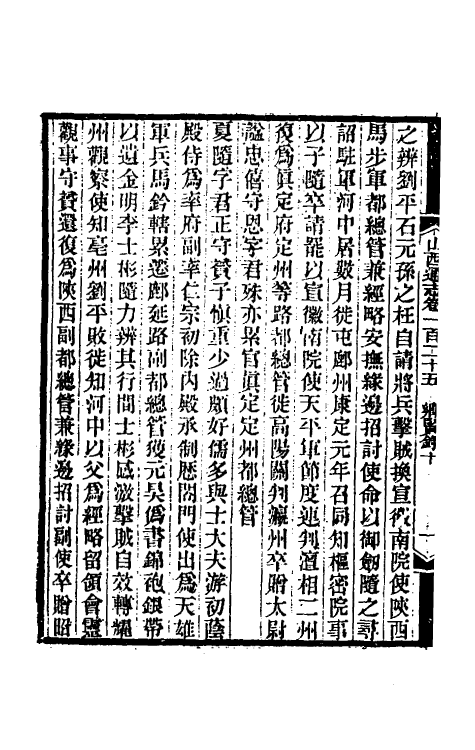 之辨劉平石元孫之枉自請將兵擊賊換宣徽南院使陝西
馬步軍都總管兼經略安撫緣邊招討使命以御劍隨之尋
詔駐軍河中居數月徙屯鄜州康定元年召同知樞密院事
以子隨卒請罷以宣徽南院使天平軍節度連判澶相二州
復爲眞定府定州等路都總管徙高陽關判瀛州卒贈太尉
諡忠僖守恩字君殊亦累官眞定定州都總管
夏隨字君正守贇子愼重少過頗好儒多與士大夫游初蔭
殿侍爲率府副率仁宗初除內殿承制歷閤門使出爲天雄
軍兵馬鈐轄累遷鄜延路副都總管獲元昊僞書錦砲銀帶
以遺金明李士彬隨力辨其行間士彬感激擊賊自效轉耀
州觀察使知亳州劉平敗徙知河中以父爲經略留領會靈
觀事守贇還復爲陝西副都總管兼緣邊招討副使卒贈昭
山西通志卷一百二十五